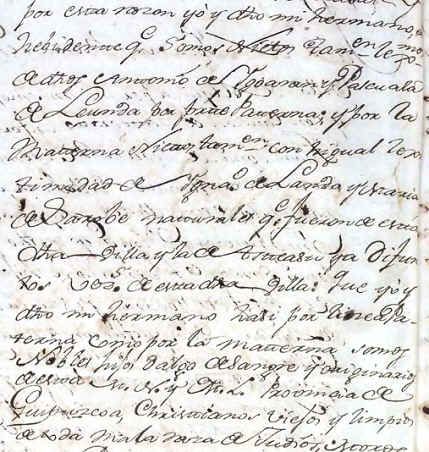 por esta razon yo y dho mi hermano,
residente q.e somos Nietos tam.en lexmos
de dhos Antonio de Ygaran y Pasquala
de Leunda por parte Paterna; y por la
Materna Nietos, tam.en con igual lexi
timidad de Ygna.o de Landa y Maria
de Sarobe naturales q.e fueron de esta
dha Villa y la de ya difun
tos vez.s de esta dha Villa: Que yo y
dho mi hermano hasi por linea Pa-
terna como por la materna somos
Nobles hijos dalgo de sangre y originarios
de esta M. N. y M. L. Provincia de
Guipuzcoa, Christianos viejos y limpios
de toda mala raza de Judios, Moros